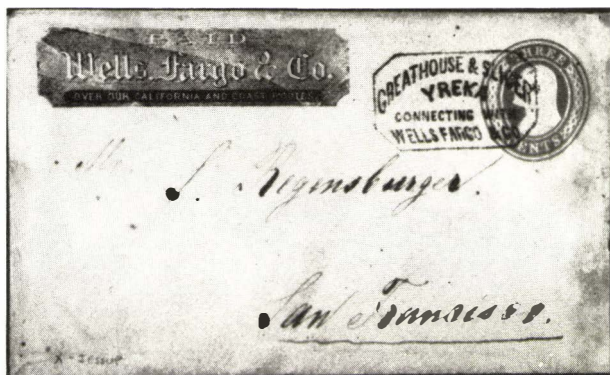 PAID
Wells, Fargo & Co.
OVER OUR CALIFORNIA AND COAST ROUTES
GREATHOUSE & SLICER
YREKA
CONNECTING WITH
WELLS FARGO & CO
THREE
CENTS
Mr. S. Regensburger.
San Francisco.
X-JESSUP